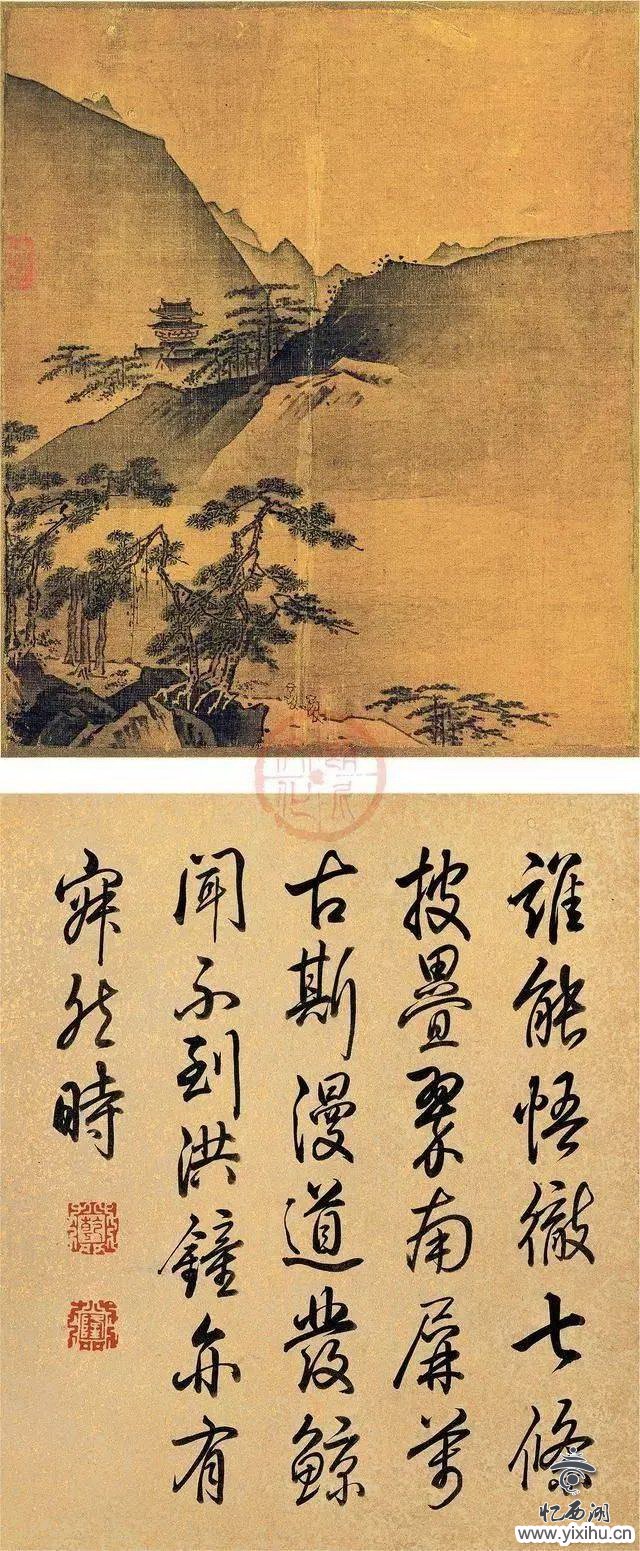 誰能悟徹七條
披疊翠南屏萬
古斯漫道發鲸
聞不到洪鐘亦有
寂然時
乾
隆
忆西湖
www.yixihu.cn